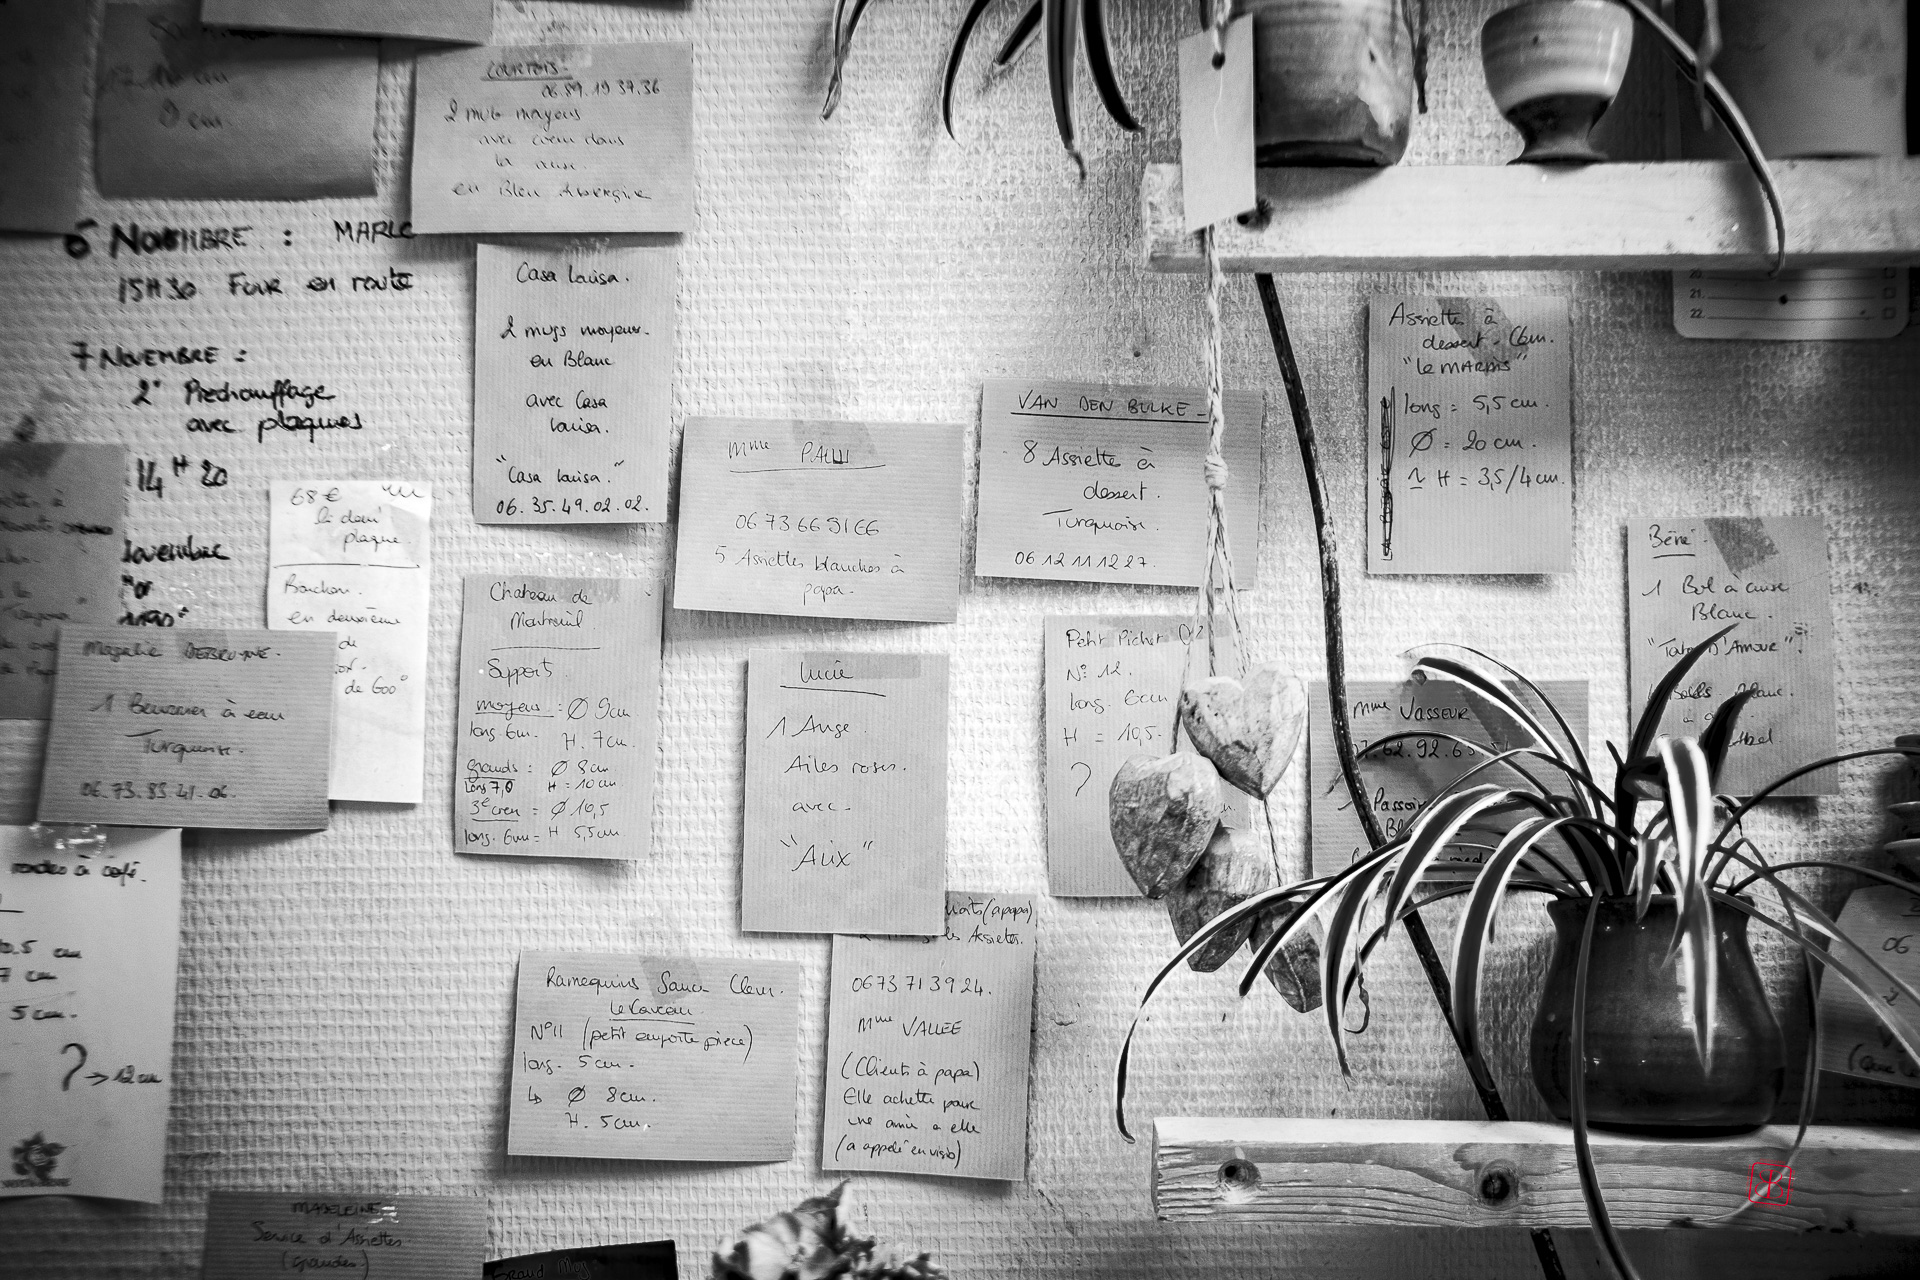 9 cm.
COURTOIS
06 89.19 37.36
2 mugs moyens
avec coeur dans
la anse
en Bleu Aubergine
6 NOVEMBRE : MARLE
15H30 Four en route
7 NOVEMBRE :
2° Prechauffage
avec plaques
14 H 20
ovembre
Casa laïsa.
2 mugs moyens.
en Blanc
avec Casa
laïsa.
"Casa laïsa."
06.35.49.02.02.
68 €
le demi
plaque.
Bouchon.
en deuxième
de
de 600°
Mme PAUU
06 73 66 51 66
5 Assiettes blanches à
papa.
VAN DEN BULKE
8 Assiette à
dessert.
Turquoise.
06 12 11 12 27.
Assiette à
dessert.
"le MARAIS"
long = 5,5 cm.
Ø = 20 cm.
~ H = 3,5/4 cm.
20.
21.
22.
Béné
1 Bol à anse
Blanc.
D'Amour"
blanc.
Magalie DEBRUYNE.
1 Beurrier à eau
Turquoise.
06.73.83.41.06.
Chateau de
Montreuil
Supports
moyens : Ø 9cm
long. 6cm. H. 7cm.
grands : Ø 8cm
long 7,0 H = 10cm
3e cren = Ø 10,5
long. 6cm = H 5,5cm
Lucie
1 Ange
Ailes roses.
avec
"Alix"
Petit Pichet
N° 12.
long. 6cm
H = 10,5.
?
Mme VASSEUR
.62.92.63
1 Passoir
à café.
0.5 cm
7 cm
5 cm.
? → 12 cm
Ramequins Sauce Clem.
le Caveau.
N°11 (petit emporte pièce)
long. 5cm.
↳ Ø 8cm.
H. 5cm.
(a papa)
les Assiettes.
06 73 71 39 24.
Mme VALLEE
(Clients à papa)
Elle achette pour
une amie a elle
(a appelé en visio)
06
2
MADELEINE
Service d'Assiettes
(grandes)
Grand Mug